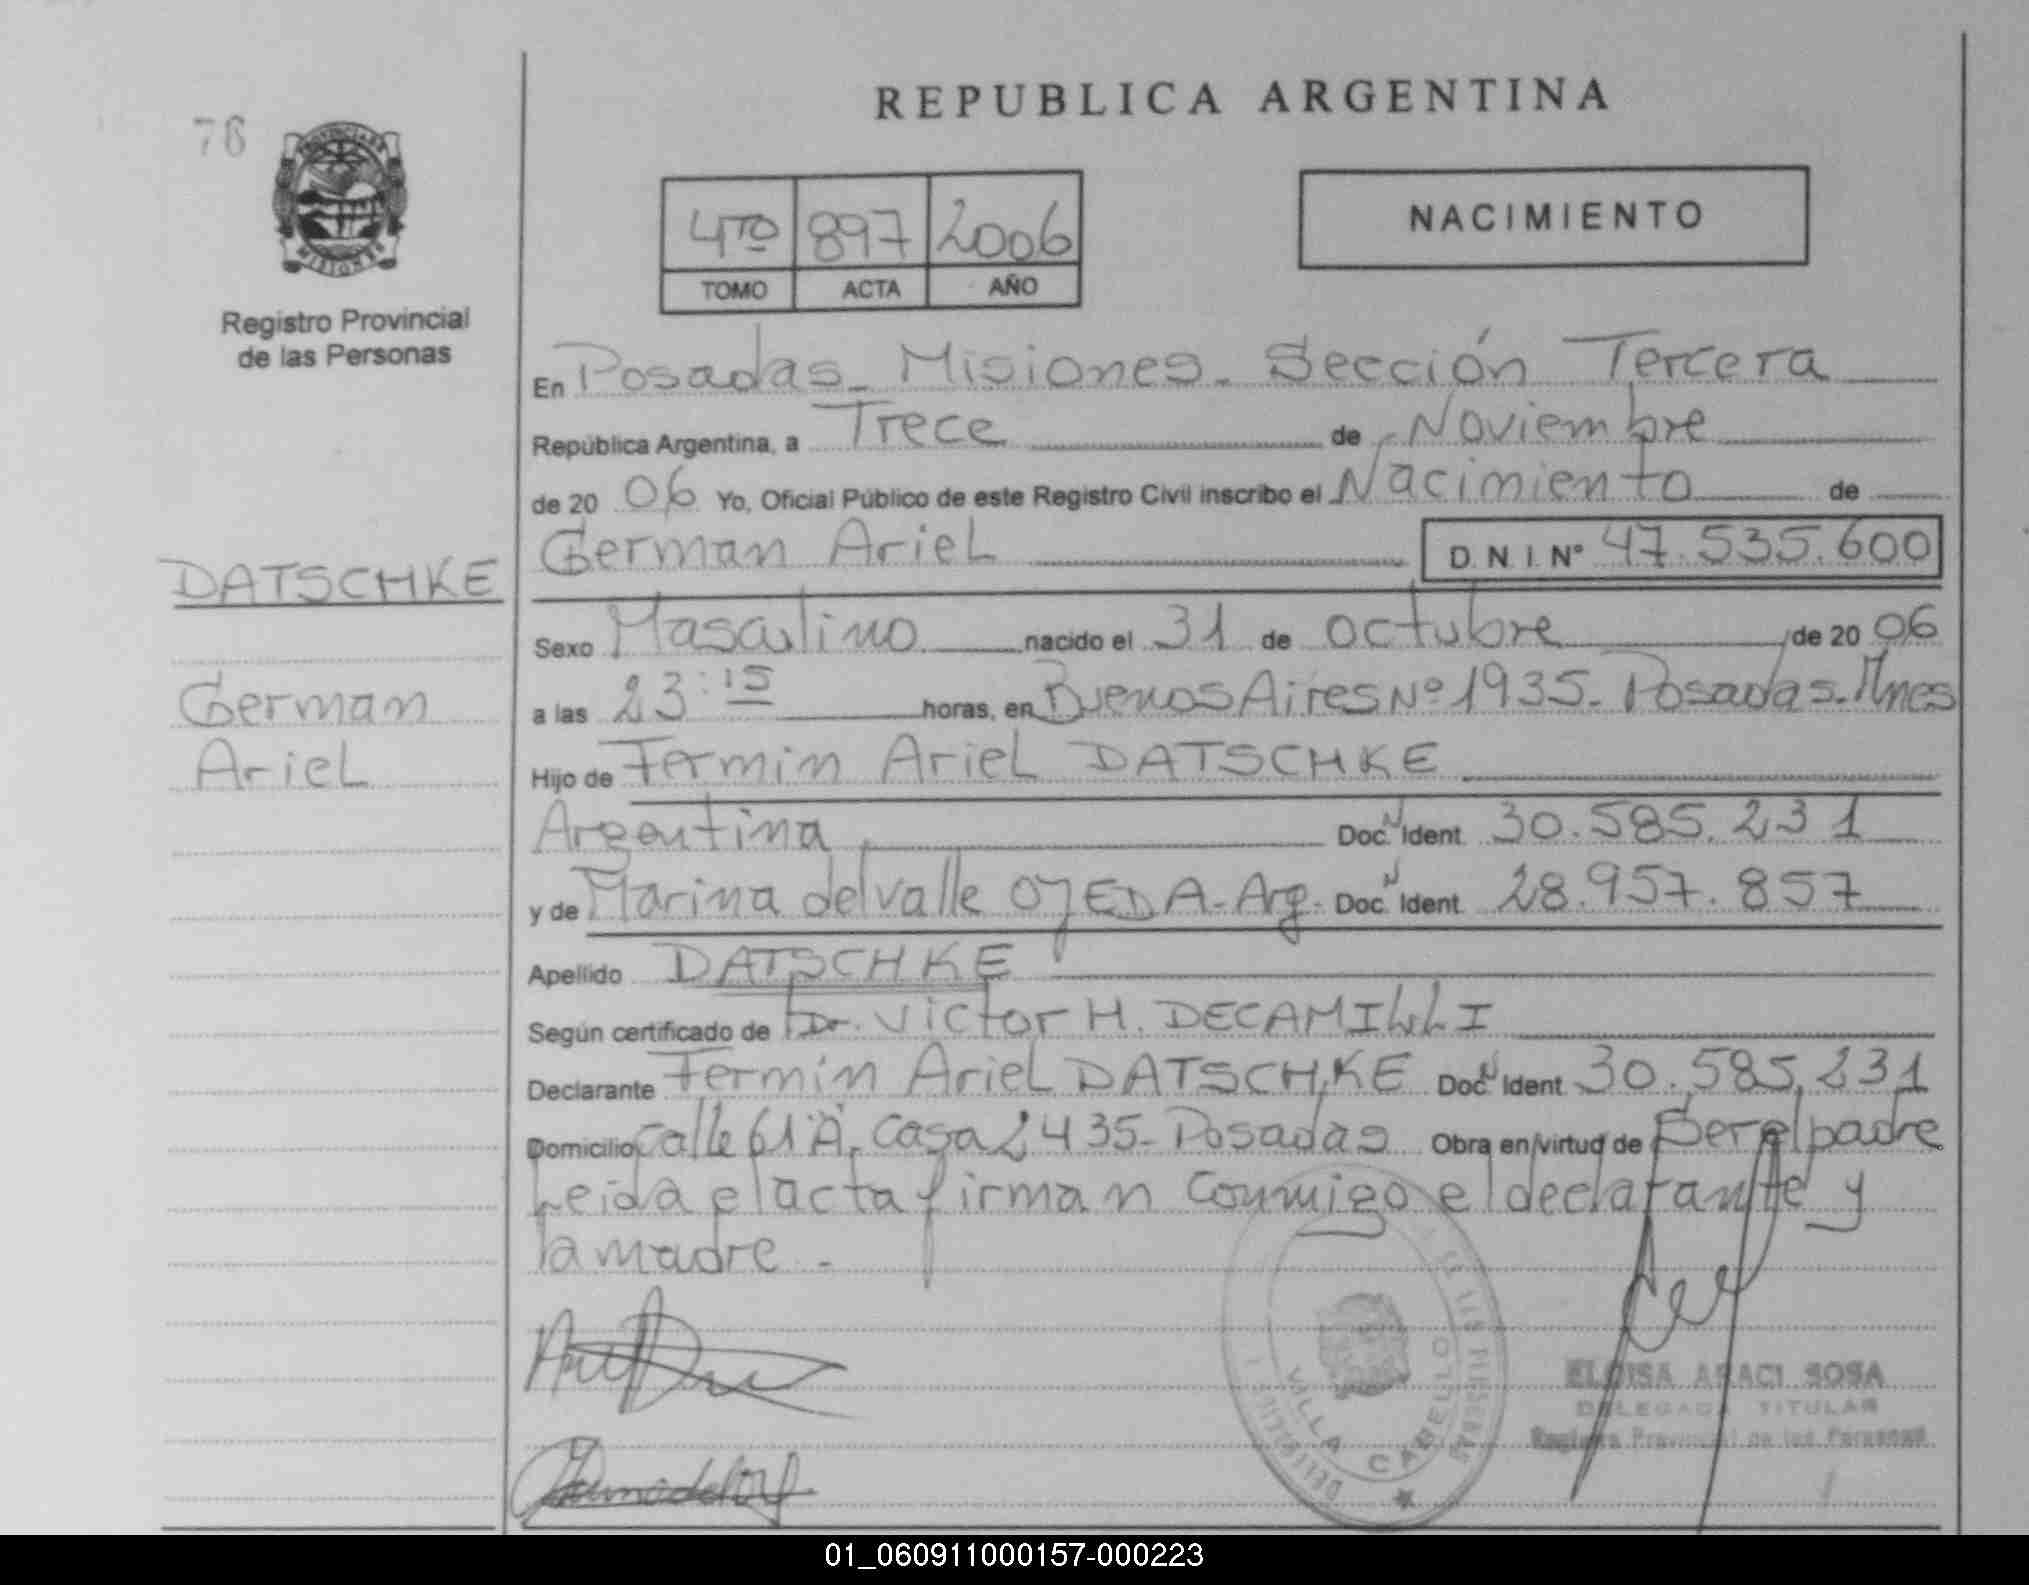 REPUBLICA ARGENTINA
76
PROVINCIA DE
MISIONES
Registro Provincial
de las Personas
4TO 897 2006
TOMO ACTA AÑO
NACIMIENTO
En Posadas - Misiones - Sección Tercera
República Argentina, a Trece de Noviembre
de 20 06 Yo, Oficial Público de este Registro Civil inscribo el Nacimiento de
German Ariel D.N.I. N° 47.535.600
DATSCHKE
German
Ariel
Sexo Masculino nacido el 31 de octubre de 20 06
a las 23:15 horas, en Buenos Aires Nº 1935 - Posadas - Mnes
Hijo de Fermin Ariel DATSCHKE
Argentina Doc. N Ident. 30.585.231
y de Marina del valle OJEDA - Arg. Doc. N Ident. 28.957.857
Apellido DATSCHKE
Según certificado de Dr. Victor H. DECAMILLI
Declarante Fermin Ariel DATSCHKE Doc. N Ident 30.585.231
Domicilio Calle 61 "A", Casa 2435 - Posadas Obra en virtud de Ser el padre
Leida el acta firman conmigo el declarante y
la madre.-
VILLA CABELLO
ELOISA ARACI SOSA
DELEGADA TITULAR
Registro Provincial de las Personas
01_060911000157-000223